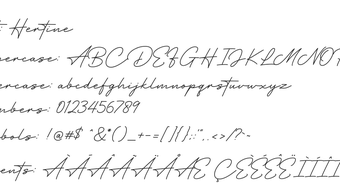 : Hertine
percase: ABCDEFGHIJKLMNO
ercase: abcdefghijklmnopqrstuvwxyz
mbers: 0123456789
bols: !@#$^&*()_+-=[]{};:'",.<>/?~
ents: ÀÁÂÃÄÅÆ ÇÈÉÊËÌÍÎÏ